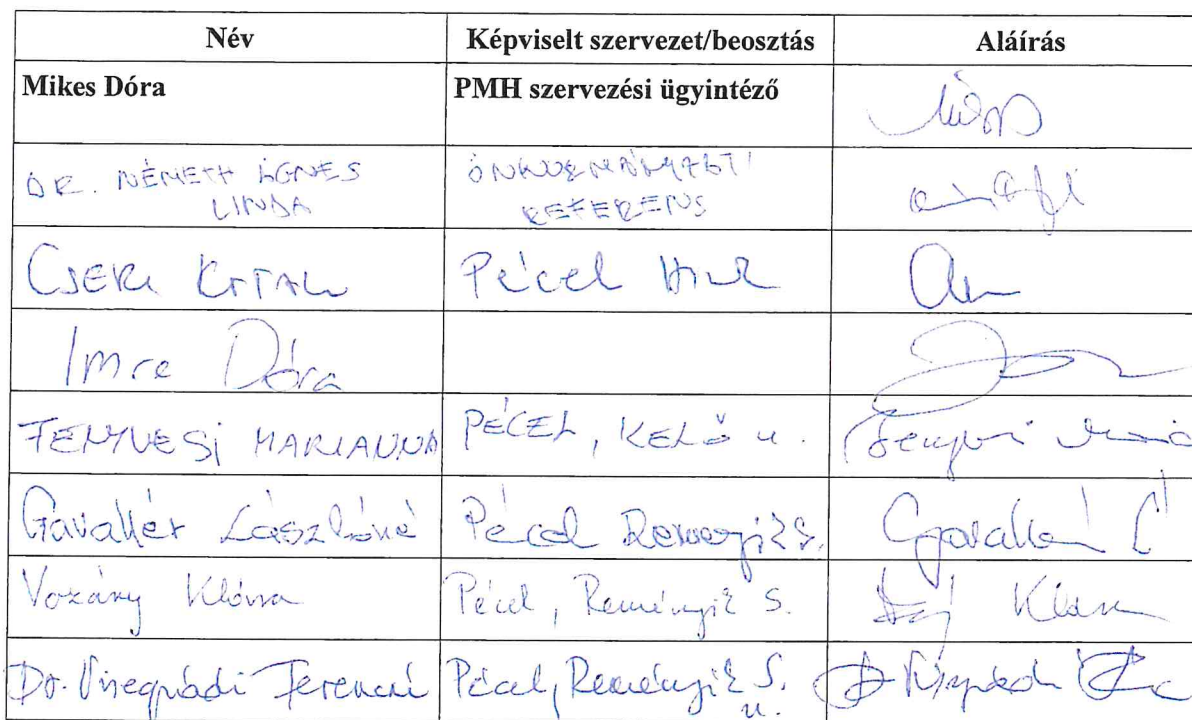 Név Képviselt szervezet/beosztás Aláírás
Mikes Dóra PMH szervezési ügyintéző
DR. NÉMETH ÁGNES ÖNKORMÁNYZATI
LINDA REFERENS
CSERI Pécel
Imre Dóra
FENYVESI MARIANNA PÉCEL, KELŐ u. Fenyvesi
Gavallér Lászlóné Pécel Reményik S. Gavallér L
Vozáry Klára Pécel, Reményik S. Klára
Dr. Visegrádi Ferencné Pécel, Reményik S. Dr Visegrádi
u.